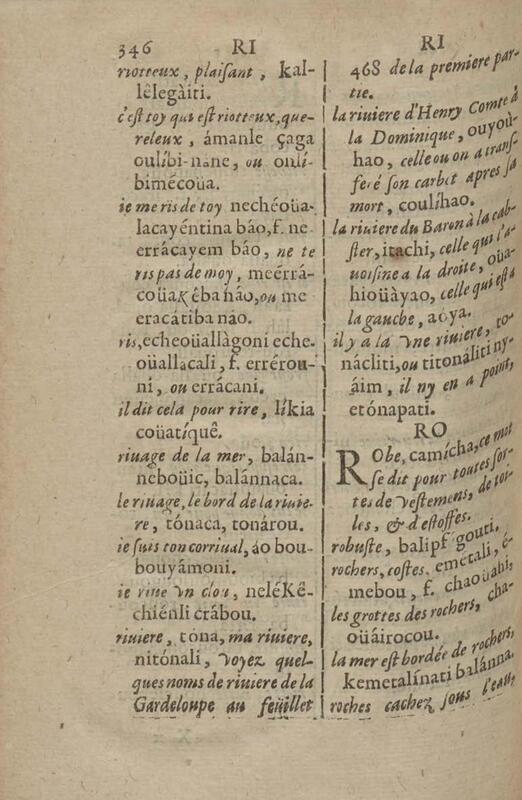 346 RI
riotteux, plaisant, kal-
lêlegàiti.
c'est toy qui est riotteux, que-
releux, ámanle çaga
oulíbi-nàne, ou onlí-
bimécoüa.
ie me ris de toy nechéoüa-
lacayéntina báo, f. ne
errácayem báo, ne te
ris pas de moy, meérrá-
coüaKêba náo, ou me
eracátiba náo.
ris, echeoüallàgoni eche-
oüallacali, f. errérou-
ni, ou errácani.
il dit cela pour rire, líkia
coüatíquê.
riuage de la mer, balán-
neboüic, balánnaca.
le riuage, le bord de la riuie-
re, tónaca, tonárou.
ie suis ton corriual, áo bou-
bouyámoni.
ie riue vn clou, neléKê-
chiénli crábou.
riuiere, tóna, ma riuiere,
nitónali, voyez quel-
ques noms de riuiere de la
Gardeloupe au feüillet
RI
468 de la premiere par-
tie.
la riuiere d'Henry Comte à
la Dominique, ouyoù-
hao, celle ou on a transf-
feré son carbet apres sa
mort, coulíhao.
la riuiere du Baron à la cab-
ster, itachi, celle qui l'a-
uoisine a la droite, oüa-
hioüàyao, celle qui est a
la gauche, aoya.
il y a la vne riuiere, to-
nácliti, ou titonáliti ny-
áim, il ny en a point,
etónapati.
RO
RObe, camícha, ce mot
se dit pour toutes sor-
tes de vestemens, de toi-
les, & d'estoffes.
robuste, balipfgouti.
rochers, costes, emétali, é-
mebou, f. chaoüahi,
les grottes des rochers, cha-
oüáirocou.
la mer est bordée de rochers,
kemetalínati balánna.
roches cachez sous l'eau,